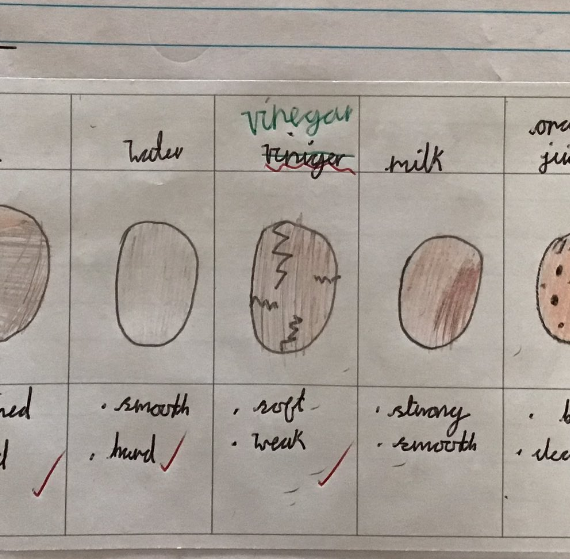 water
vinegar
viniger
milk
• smooth
• hard
• soft
• weak
• strong
• smooth